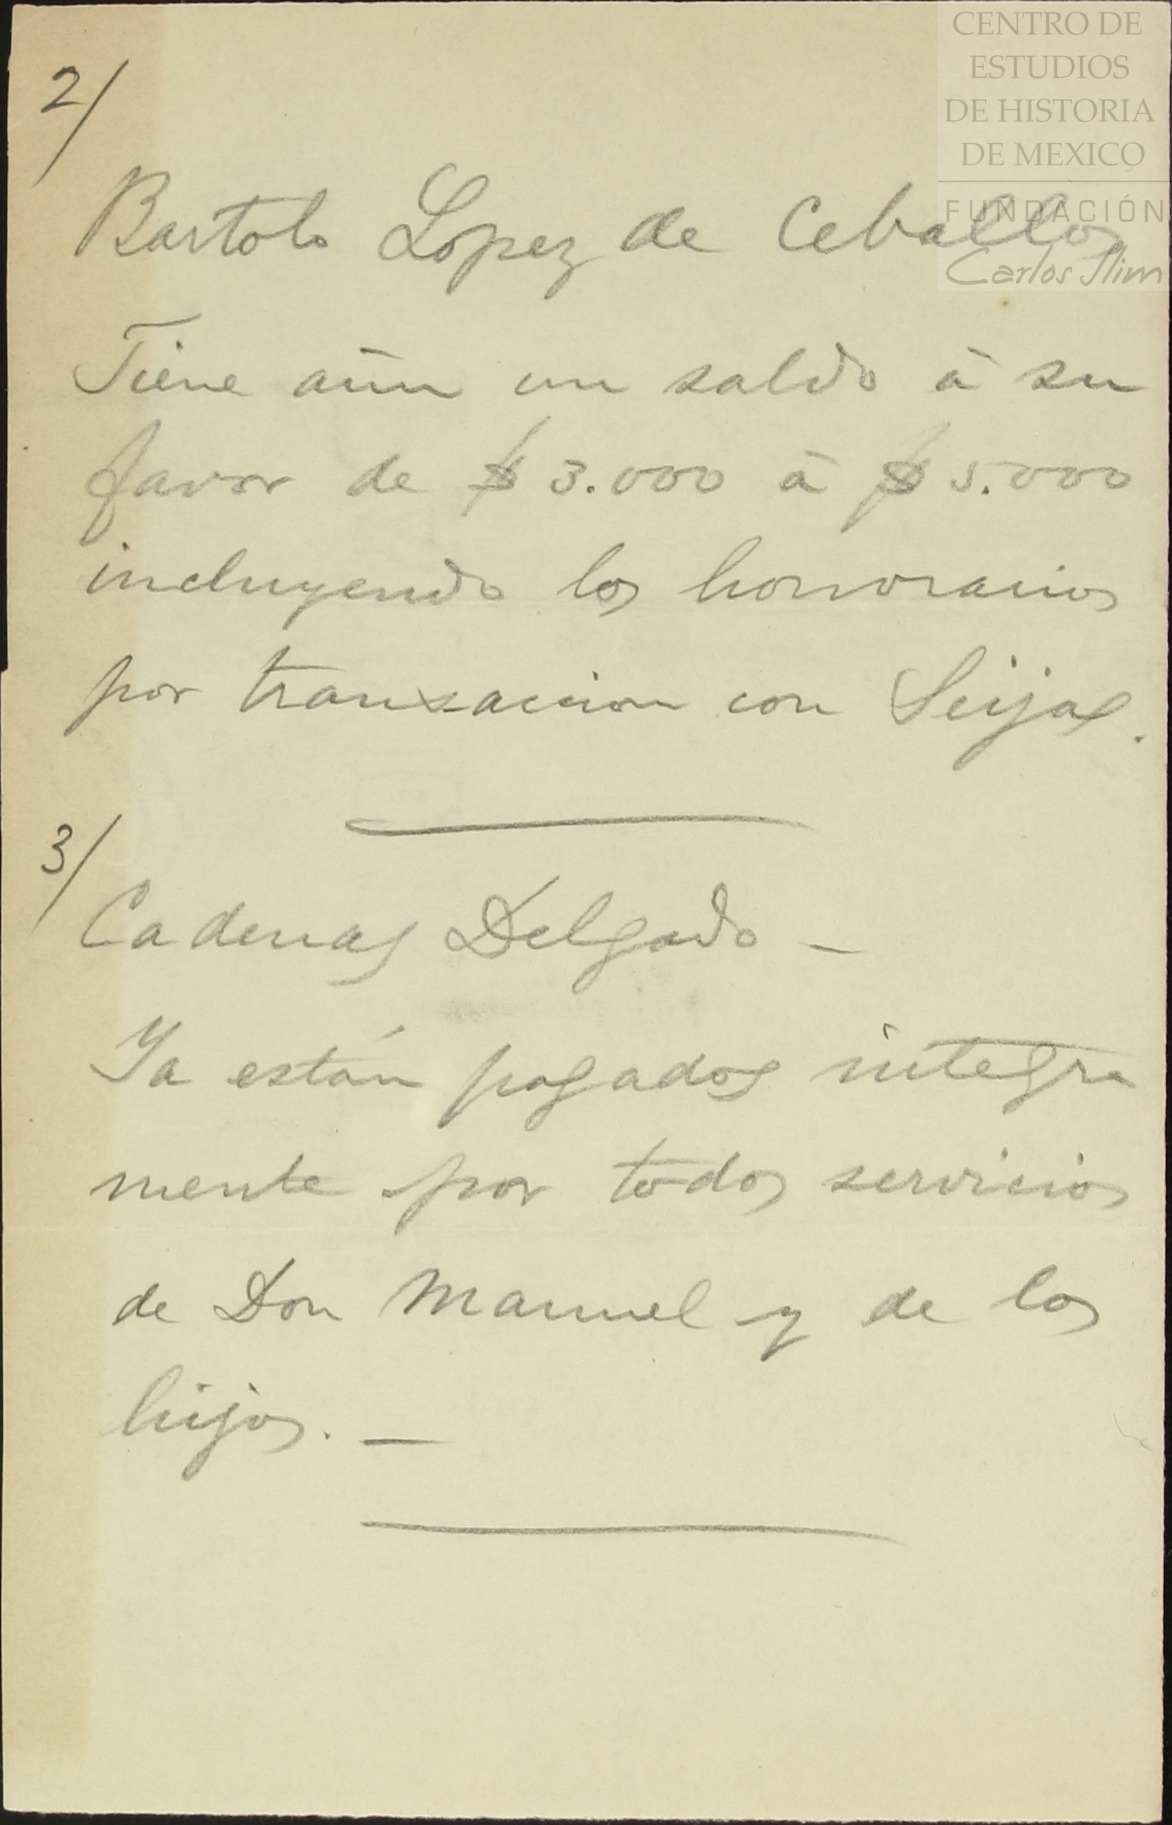 CENTRO DE
ESTUDIOS
DE HISTORIA
DE MEXICO
FUNDACIÓN
Carlos Slim
2/
Bartolo Lopez de Ceballos
Tiene aún un saldo à su
favor de $ 3.000 à $ 5.000
incluyendo los honorarios
por transaccion con Seijas.
3/
Cadenas Delgado -
Ya están pagados integra
mente por todos servicios
de Don Manuel y de los
hijos. -